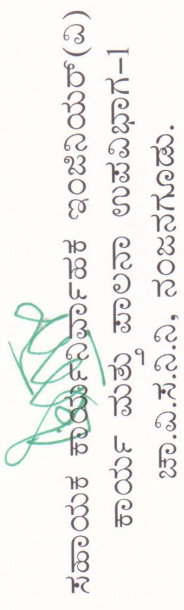 ಸಹಾಯಕ ಕಾರ್ಯನಿರ್ವಾಹಕ ಇಂಜಿನಿಯರ್(ವಿ)
ಕಾರ್ಯ ಮತ್ತು ಪಾಲನಾ ಉಪವಿಭಾಗ-1
ಚಾ.ವಿ.ಸ.ನಿ.ನಿ, ನಂಜನಗೂಡು.